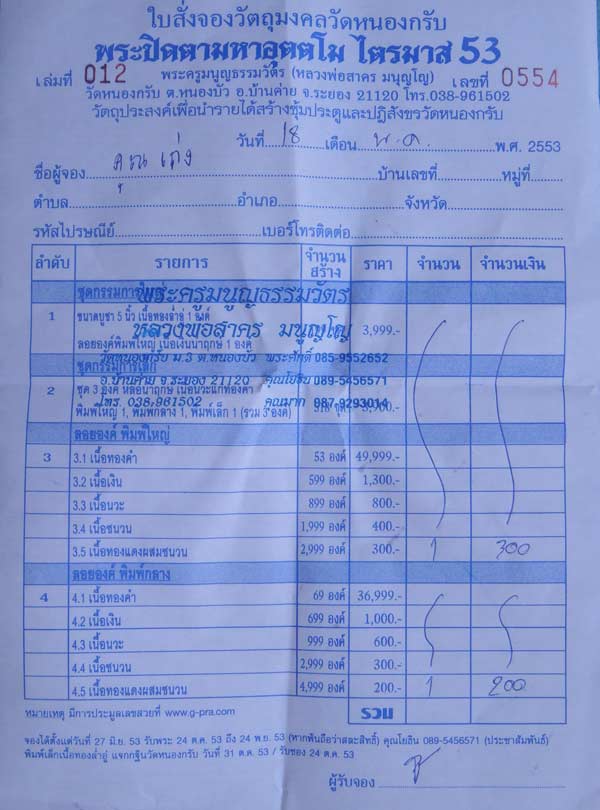 ใบสั่งจองวัตถุมงคลวัดหนองกรับ
พระปิดตามหาอุตตโม ไตรมาส 53
เล่มที่ 012 พระครูมนูญธรรมวัตร (หลวงพ่อสาคร มนุญโญ) เลขที่ 0554
วัดหนองกรับ ต.หนองบัว อ.บ้านค่าย จ.ระยอง 21120 โทร.038-961502
วัตถุประสงค์เพื่อนำรายได้สร้างซุ้มประตูและปฏิสังขรวัดหนองกรับ
วันที่ 18 เดือน พ.ค. พ.ศ. 2553
ชื่อผู้จอง คุณ เก่ง บ้านเลขที่ หมู่ที่
ตำบล อำเภอ จังหวัด
รหัสไปรษณีย์ เบอร์โทรติดต่อ
ลำดับ รายการ จำนวนสร้าง ราคา จำนวน จำนวนเงิน
ชุดกรรมการ
พระครูมนูญธรรมวัตร
1 ขนาดบูชา 5 นิ้ว เนื้อทองล่ำอู่ 1 องค์
หลวงพ่อสาคร มนุญโญ 3,999.-
ลอยองค์พิมพ์ใหญ่ เนื้อเงินนาฤกษ์ 1 องค์
วัดหนองกรับ ม.3 ต.หนองบัว พระศักดิ์ 085-9552652
ชุดกรรมการเล็ก
อ.บ้านค่าย จ.ระยอง 21120 คุณโยธิน 089-5456571
2 ชุด 3 องค์ หล่อนาฤกษ์ เนื้อนวะแก่ทองคำ
โทร. 038-961502 คุณมาก 087-9293014
พิมพ์ใหญ่ 1, พิมพ์กลาง 1, พิมพ์เล็ก 1 (รวม 3 องค์)
ลอยองค์ พิมพ์ใหญ่
3 3.1 เนื้อทองคำ 53 องค์ 49,999.-
3.2 เนื้อเงิน 599 องค์ 1,300.-
3.3 เนื้อนวะ 899 องค์ 800.-
3.4 เนื้อชนวน 1,999 องค์ 400.-
3.5 เนื้อทองแดงผสมชนวน 2,999 องค์ 300.- 1 300
ลอยองค์ พิมพ์กลาง
4 4.1 เนื้อทองคำ 69 องค์ 36,999.-
4.2 เนื้อเงิน 699 องค์ 1,000.-
4.3 เนื้อนวะ 999 องค์ 600.-
4.4 เนื้อชนวน 2,999 องค์ 300.-
4.5 เนื้อทองแดงผสมชนวน 4,999 องค์ 200.- 1 200
หมายเหตุ มีการประมูลเลขสวยที่ www.g-pra.com รวม
จองได้ตั้งแต่วันที่ 27 มิ.ย. 53 รับพระ 24 ต.ค. 53 ถึง 24 พ.ย. 53 (หากพ้นถือว่าสละสิทธิ์) คุณโยธิน 089-5456571 (ประชาสัมพันธ์)
พิมพ์เล็กเนื้อทองล่ำอู่ แจกกฐินวัดหนองกรับ วันที่ 31 ต.ค. 53 / รับซอง 24 ต.ค. 53
ผู้รับจอง